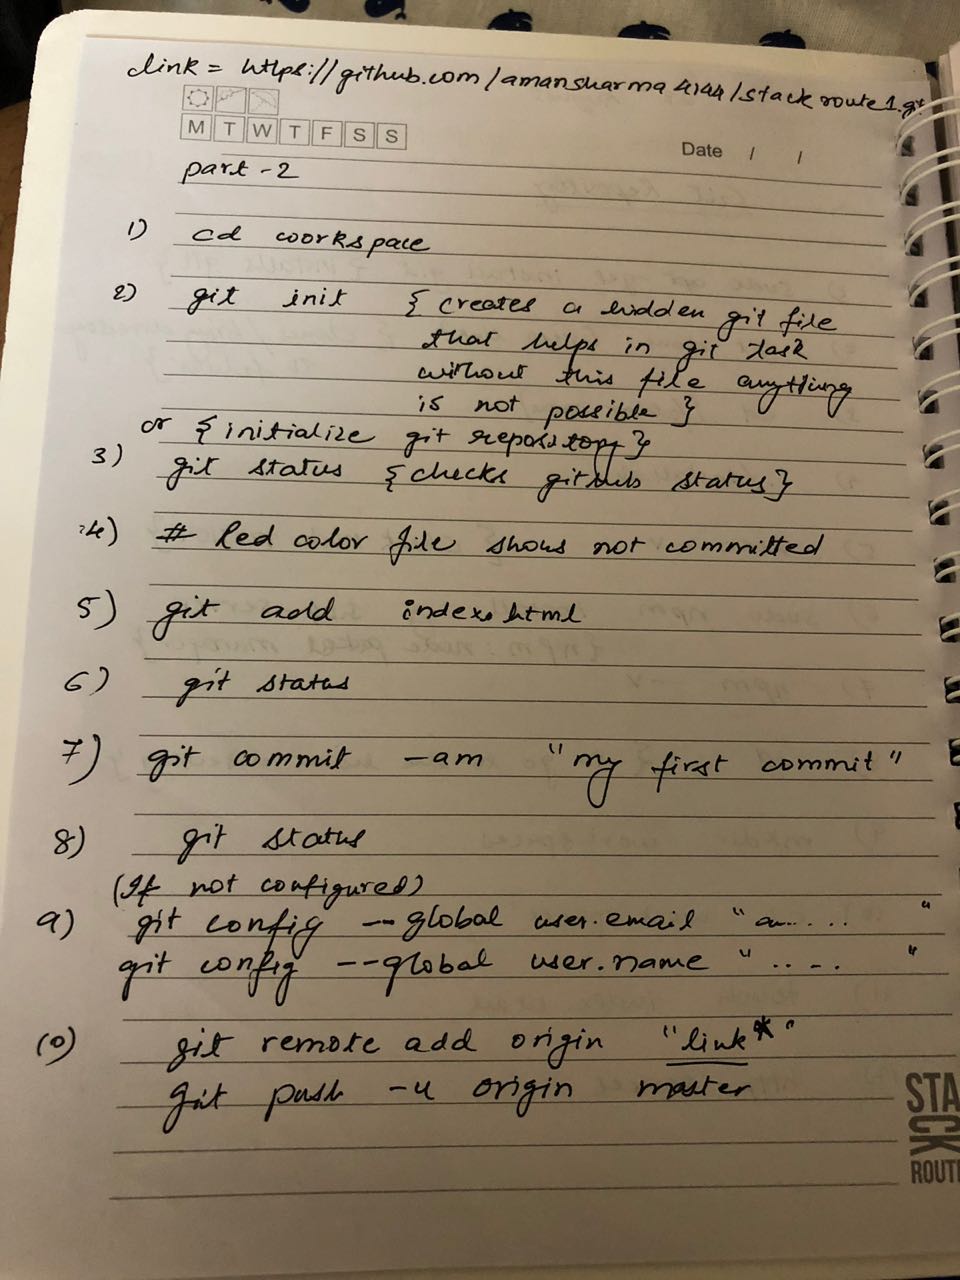 link = https://github.com/amansharma4144/stackroute1.git
M T W T F S S
Date / /
part - 2
1) cd workspace
2) git init { creates a hidden git file
that helps in git task
without this file anything
is not possible }
or { initialize git repository }
3) git status { checks github status }
4) # Red color file shows not committed
5) git add index.html
6) git status
7) git commit -am "my first commit"
8) git status
(If not configured)
9) git config --global user.email "a..... "
git config --global user.name " ..... "
10) git remote add origin "link*"
git push -u origin master
STA
CK
ROUT